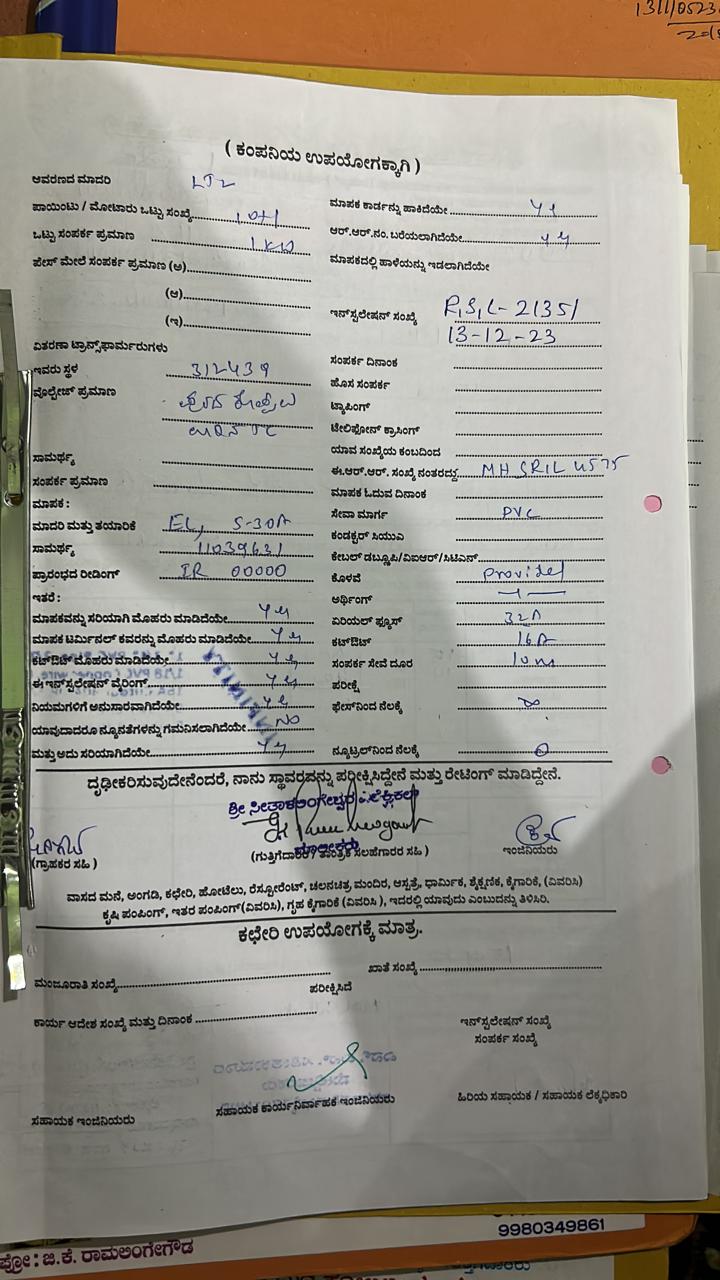 1311/0523
( ಕಂಪನಿಯ ಉಪಯೋಗಕ್ಕಾಗಿ )
ಆವರಣದ ಮಾದರಿ LT2
ಪಾಯಿಂಟು / ಮೋಟಾರು ಒಟ್ಟು ಸಂಖ್ಯೆ
ಒಟ್ಟು ಸಂಪರ್ಕ ಪ್ರಮಾಣ 1 KW
ಪೇಸ್ ಮೇಲೆ ಸಂಪರ್ಕ ಪ್ರಮಾಣ (ಅ)
(ಆ)
(ಇ)
ವಿತರಣಾ ಟ್ರಾನ್ಸ್‌ಫಾರ್ಮರುಗಳು
ಇವರು ಸ್ಥಳ 312439
ವೊಲ್ಟೇಜ್ ಪ್ರಮಾಣ
ಸಾಮರ್ಥ್ಯ
ಸಂಪರ್ಕ ಪ್ರಮಾಣ
ಮಾಪಕ :
ಮಾದರಿ ಮತ್ತು ತಯಾರಿಕೆ EL, 5-30A
ಸಾಮರ್ಥ್ಯ 11039631
ಪ್ರಾರಂಭದ ರೀಡಿಂಗ್ IR 00000
ಇತರೆ :
ಮಾಪಕವನ್ನು ಸರಿಯಾಗಿ ಮೊಹರು ಮಾಡಿದೆಯೇ
ಮಾಪಕ ಟರ್ಮಿನಲ್ ಕವರನ್ನು ಮೊಹರು ಮಾಡಿದೆಯೇ
ಕಟ್‌ಔಟ್ ಮೊಹರು ಮಾಡಿದೆಯೇ
ಈ ಇನ್‌ಸ್ಟಲೇಷನ್ ವೈರಿಂಗ್
ನಿಯಮಗಳಿಗೆ ಅನುಸಾರವಾಗಿದೆಯೇ
ಯಾವುದಾದರೂ ನ್ಯೂನತೆಗಳನ್ನು ಗಮನಿಸಲಾಗಿದೆಯೇ NO
ಮತ್ತು ಅದು ಸರಿಯಾಗಿದೆಯೇ
ಮಾಪಕ ಕಾರ್ಡನ್ನು ಹಾಕಿದೆಯೇ
ಆರ್.ಆರ್.ನಂ. ಬರೆಯಲಾಗಿದೆಯೇ
ಮಾಪಕದಲ್ಲಿ ಹಾಳೆಯನ್ನು ಇಡಲಾಗಿದೆಯೇ
ಇನ್‌ಸ್ಟಲೇಷನ್ ಸಂಖ್ಯೆ R,S,L- 21351
13-12-23
ಸಂಪರ್ಕ ದಿನಾಂಕ
ಹೊಸ ಸಂಪರ್ಕ
ಟ್ಯಾಪಿಂಗ್
ಟೆಲಿಫೋನ್ ಕ್ರಾಸಿಂಗ್
ಯಾವ ಸಂಖ್ಯೆಯ ಕಂಬದಿಂದ
ಈ.ಆರ್.ಆರ್. ಸಂಖ್ಯೆ ನಂತರದ್ದು MHSRIL 4575
ಮಾಪಕ ಓದುವ ದಿನಾಂಕ
ಸೇವಾ ಮಾರ್ಗ PVC
ಕಂಡಕ್ಟರ್ ಸಿಯುಎ
ಕೇಬಲ್ ಡಬ್ಲ್ಯೂಪಿ/ವಿಐಆರ್/ಸಿಟಿಎಸ್
ಕೊಳವೆ Provided
ಅರ್ಥಿಂಗ್
ಏರಿಯಲ್ ಫ್ಯೂಸ್ 32A
ಕಟ್‌ಔಟ್ 16A
ಸಂಪರ್ಕ ಸೇವೆ ದೂರ 10m
ಪರೀಕ್ಷೆ
ಫೇಸ್‌ನಿಂದ ನೆಲಕ್ಕೆ
ನ್ಯೂಟ್ರಲ್‌ನಿಂದ ನೆಲಕ್ಕೆ
ದೃಢೀಕರಿಸುವುದೇನೆಂದರೆ, ನಾನು ಸ್ಥಾವರವನ್ನು ಪರೀಕ್ಷಿಸಿದ್ದೇನೆ ಮತ್ತು ರೇಟಿಂಗ್ ಮಾಡಿದ್ದೇನೆ.
(ಗ್ರಾಹಕರ ಸಹಿ )
(ಗುತ್ತಿಗೆದಾರರ / ತಾಂತ್ರಿಕ ಸಲಹೆಗಾರರ ಸಹಿ )
ಇಂಜಿನಿಯರು
ವಾಸದ ಮನೆ, ಅಂಗಡಿ, ಕಛೇರಿ, ಹೋಟೆಲು, ರೆಸ್ಟೋರೆಂಟ್, ಚಲನಚಿತ್ರ ಮಂದಿರ, ಆಸ್ಪತ್ರೆ, ಧಾರ್ಮಿಕ, ಶೈಕ್ಷಣಿಕ, ಕೈಗಾರಿಕೆ, (ವಿವರಿಸಿ)
ಕೃಷಿ ಪಂಪಿಂಗ್, ಇತರ ಪಂಪಿಂಗ್(ವಿವರಿಸಿ), ಗೃಹ ಕೈಗಾರಿಕೆ (ವಿವರಿಸಿ ), ಇದರಲ್ಲಿ ಯಾವುದು ಎಂಬುದನ್ನು ತಿಳಿಸಿರಿ.
ಕಛೇರಿ ಉಪಯೋಗಕ್ಕೆ ಮಾತ್ರ.
ಮಂಜೂರಾತಿ ಸಂಖ್ಯೆ
ಖಾತೆ ಸಂಖ್ಯೆ
ಪರೀಕ್ಷಿಸಿದೆ
ಕಾರ್ಯ ಆದೇಶ ಸಂಖ್ಯೆ ಮತ್ತು ದಿನಾಂಕ
ಇನ್‌ಸ್ಟಲೇಷನ್ ಸಂಖ್ಯೆ
ಸಂಪರ್ಕ ಸಂಖ್ಯೆ
ಸಹಾಯಕ ಇಂಜಿನಿಯರು
ಸಹಾಯಕ ಕಾರ್ಯನಿರ್ವಾಹಕ ಇಂಜಿನಿಯರು
ಹಿರಿಯ ಸಹಾಯಕ / ಸಹಾಯಕ ಲೆಕ್ಕಧಿಕಾರಿ
9980349861
ಪ್ರೋ : ಜಿ.ಕೆ. ರಾಮಲಿಂಗೇಗೌಡ